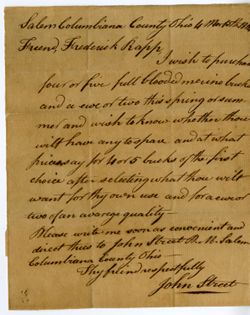 Salem Columbiana County Ohio 4 Mo 15th
Friend, Frederick Rapp
I wish to purchase
four or five full blooded merino bucks
and a ewe or two this spring or sum
mer and wish to know whether thou
wilt have any to spare and at what
prices say for 4 or 5 bucks of the first
choice after selecting what thou wilt
want for thy own use and for a ewe or
two of an avarege quality
Please write me soon as convenient and
direct thus to John Street P. M. Salem
Columbiana County Ohio
Thy friend respectfully
John Street